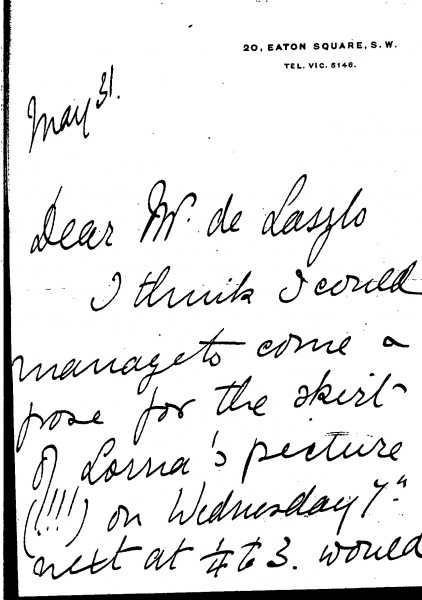 20, EATON SQUARE, S. W.
TEL. VIC. 5148.
May 31.
Dear Mr. de Laszlo
I think I could
manage to come &
pose for the skirt
of Lorna's picture
(!!!) on Wednesday 7th
next at ¼ to 3. would